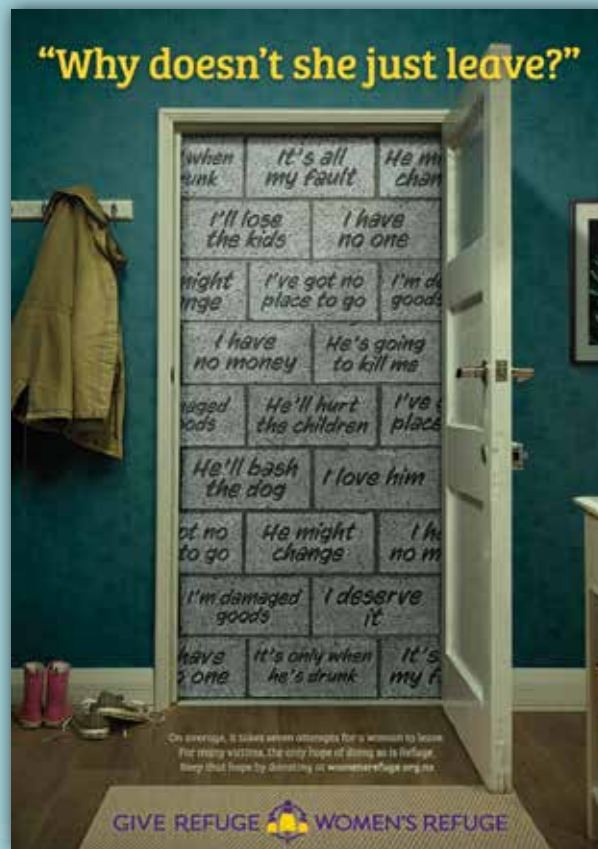 “Why doesn’t she just leave?”
when
unk
It's all
my fault
He mi
chan
I'll lose
the kids
I have
no one
might
nge
I've got no
place to go
I'm da
goods
I have
no money
He's going
to kill me
maged
oods
He'll hurt
the children
I've g
place
He'll bash
the dog
I love him
ot no
to go
He might
change
I ha
no m
I'm damaged
goods
I deserve
it
have
o one
It's only when
he's drunk
It's
my f
On average, it takes seven attempts for a woman to leave.
For many victims, the only hope of doing so is Refuge.
Keep that hope by donating at womensrefuge.org.nz
GIVE REFUGE WOMEN'S REFUGE